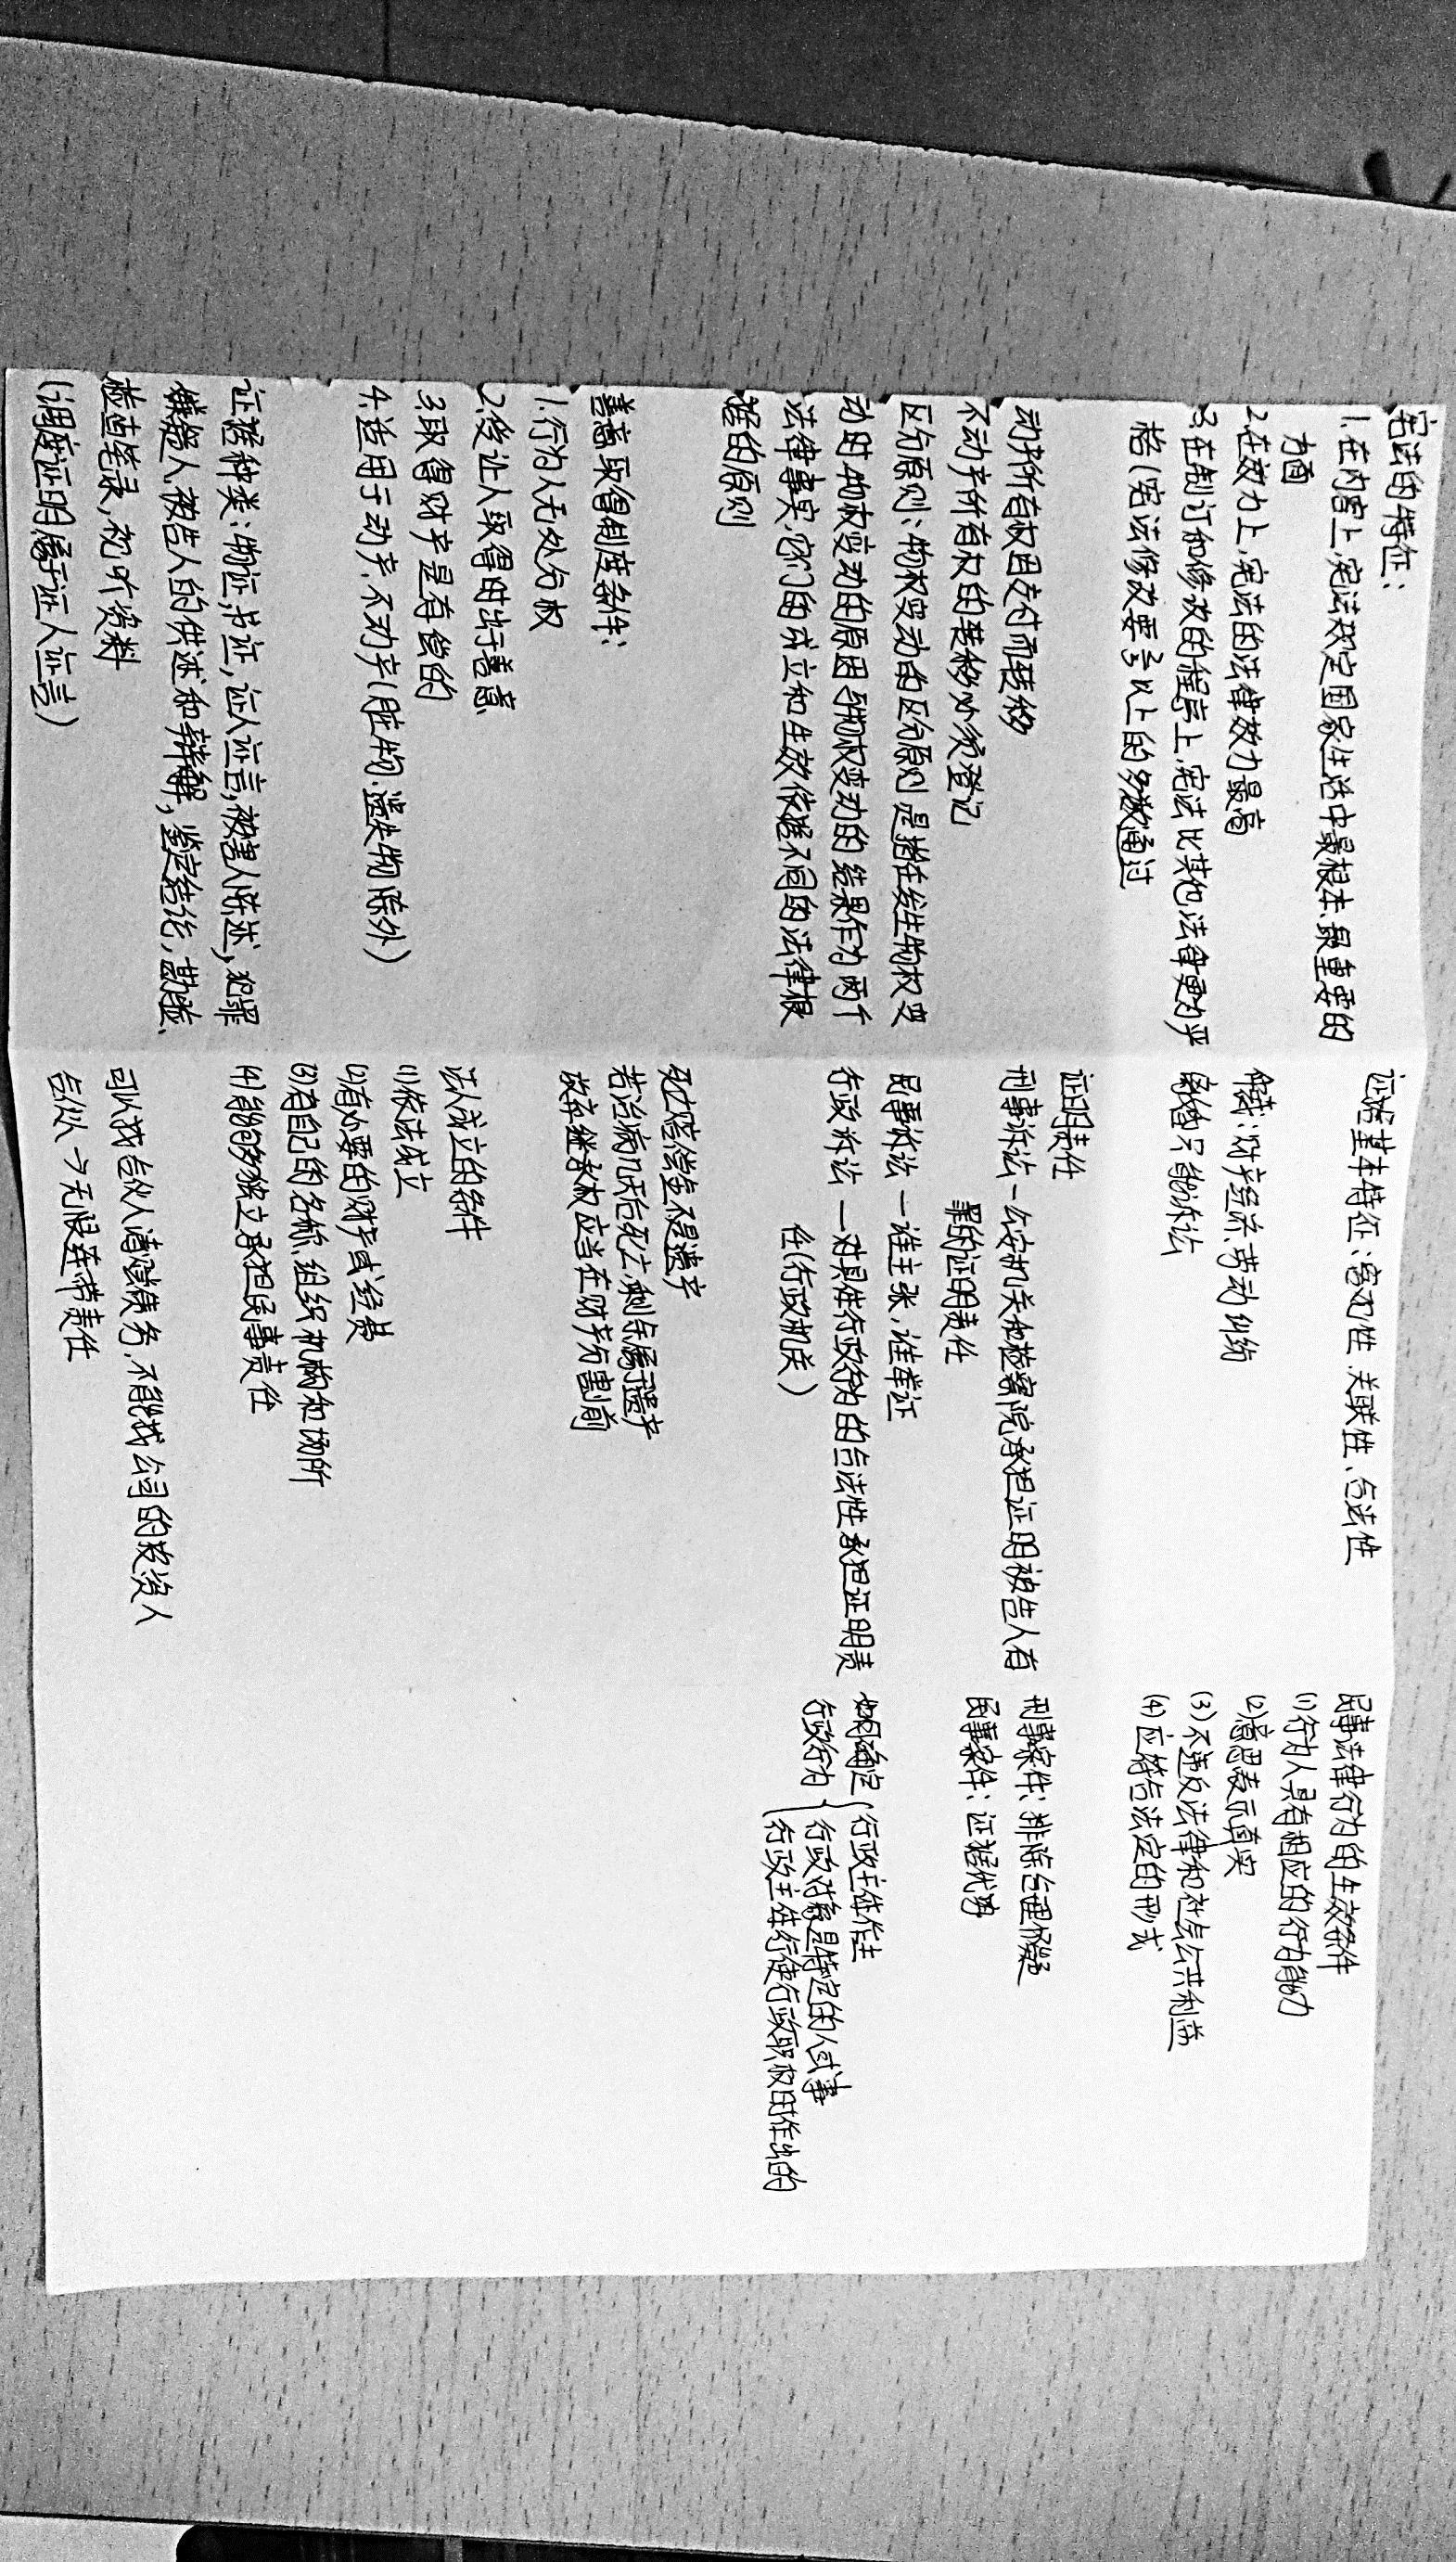 宪法的特征:
1.在内容上,宪法规定国家生活中最根本、最重要的
方面
2.在效力上,宪法的法律效力最高
3.在制订和修改的程序上,宪法比其他法律更为严
格(宪法修改要 以上的多数通过
动产所有权因交付而转移
不动产所有权的转移必须登记
区分原则:物权变动的区分原则是指在发生物权变
动时物权变动的原因与物权变动的结果作为两个
法律事实,它们的成立和生效依据不同的法律根
据的原则
善意取得制度条件:
1.行为人无处分权
2.受让人取得时出于善意
3.取得财产是有偿的
4.适用于动产、不动产(脏物、遗失物除外)
证据种类:物证,书证,证人证言,被害人陈述,犯罪
嫌疑人、被告人的供述和辩解,鉴定结论,勘验、
检查笔录,视听资料
(调度证明属于证人证言)
证据基本特征:客观性、关联性、合法性
仲裁:财产经济、劳动纠纷
离婚只能诉讼
证明责任
刑事诉讼—公安机关和检察院承担证明被告人有
罪的证明责任
民事诉讼—谁主张,谁举证
行政诉讼—对具体行政行为的合法性承担证明责
任(行政机关)
死亡赔偿金不是遗产
若治病几天后死亡,剩余属于遗产
放弃继承权应当在财产分割前
法人成立的条件
(1)依法成立
(2)有必要的财产或经费
(3)有自己的名称、组织机构和场所
(4)能够独立承担民事责任
可以找合伙人清偿债务,不能找公司的投资人
合伙人→无限连带责任
民事法律行为的生效条件
(1)行为人具有相应的行为能力
(2)意思表示真实
(3)不违反法律和社会公共利益
(4)应符合法定的形式
刑事案件:排除合理怀疑
民事案件:证据优势
如何确定
行政行为
行政主体作出
行政对象是特定的人或事
行政主体行使行政职权时作出的